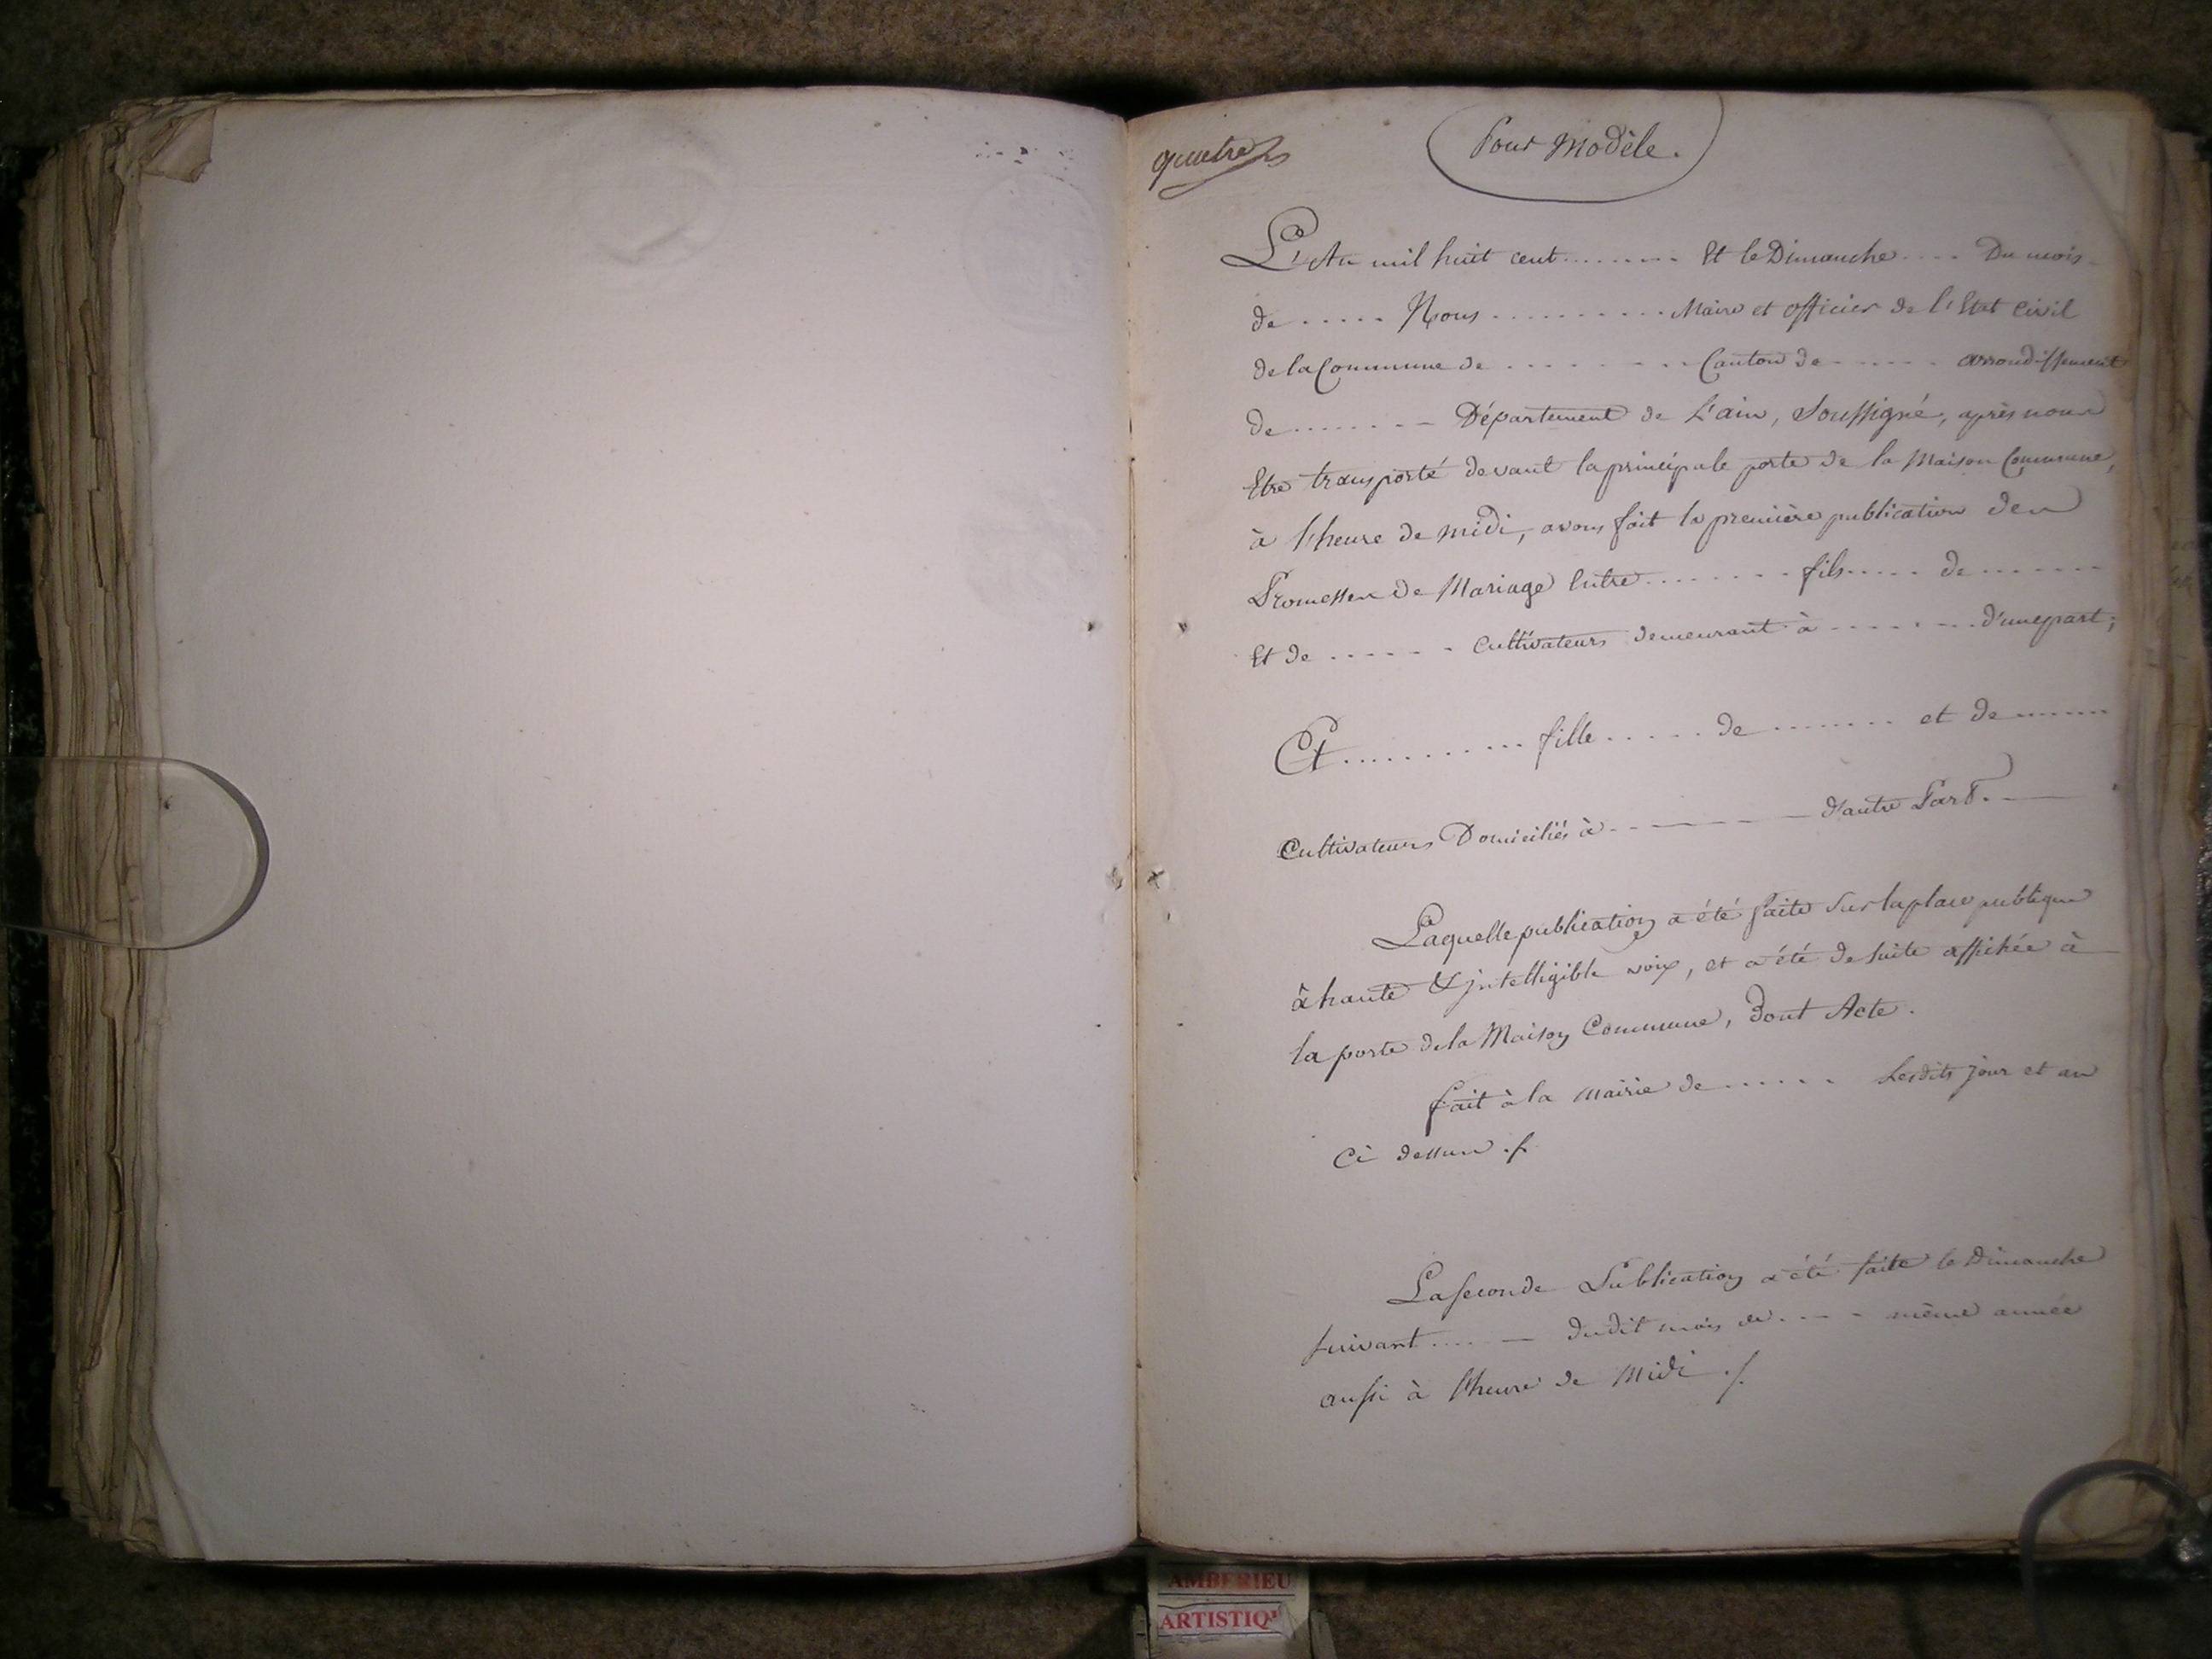 quatre
Pour Modèle.
L'An mil huit cent ........ Et le Dimanche .... Du mois
de ..... Nous .......... Maire et officier de l'Etat Civil
de la Commune de ........ Canton de ...... arrondissement
de ........ Département de L'ain, Soussigné, après nous
Etre transporté devant la principale porte de la Maison Commune,
à l'heure de midi, avons fait la première publication des
Promesses de Mariage Entre ........ fils ..... de .......
Et de ...... Cultivateurs demeurant à ....... d'une part;
Et .......... fille ..... de ....... et de .......
Cultivateurs Domiciliés à ------ d'autre Part.
Laquelle publication a été faite sur la place publique
à haute & jntelligible voix, et a été de suite affichée à
la porte de la Maison Commune, Dont Acte.
fait à la Mairie de ...... Lesdits jour et an
Ci dessus ./.
La seconde Publication a été faite le Dimanche
suivant ..... dudit mois de .... même année
aussi à l'heure de Midi ./.
AMBERIEU
ARTISTIQ